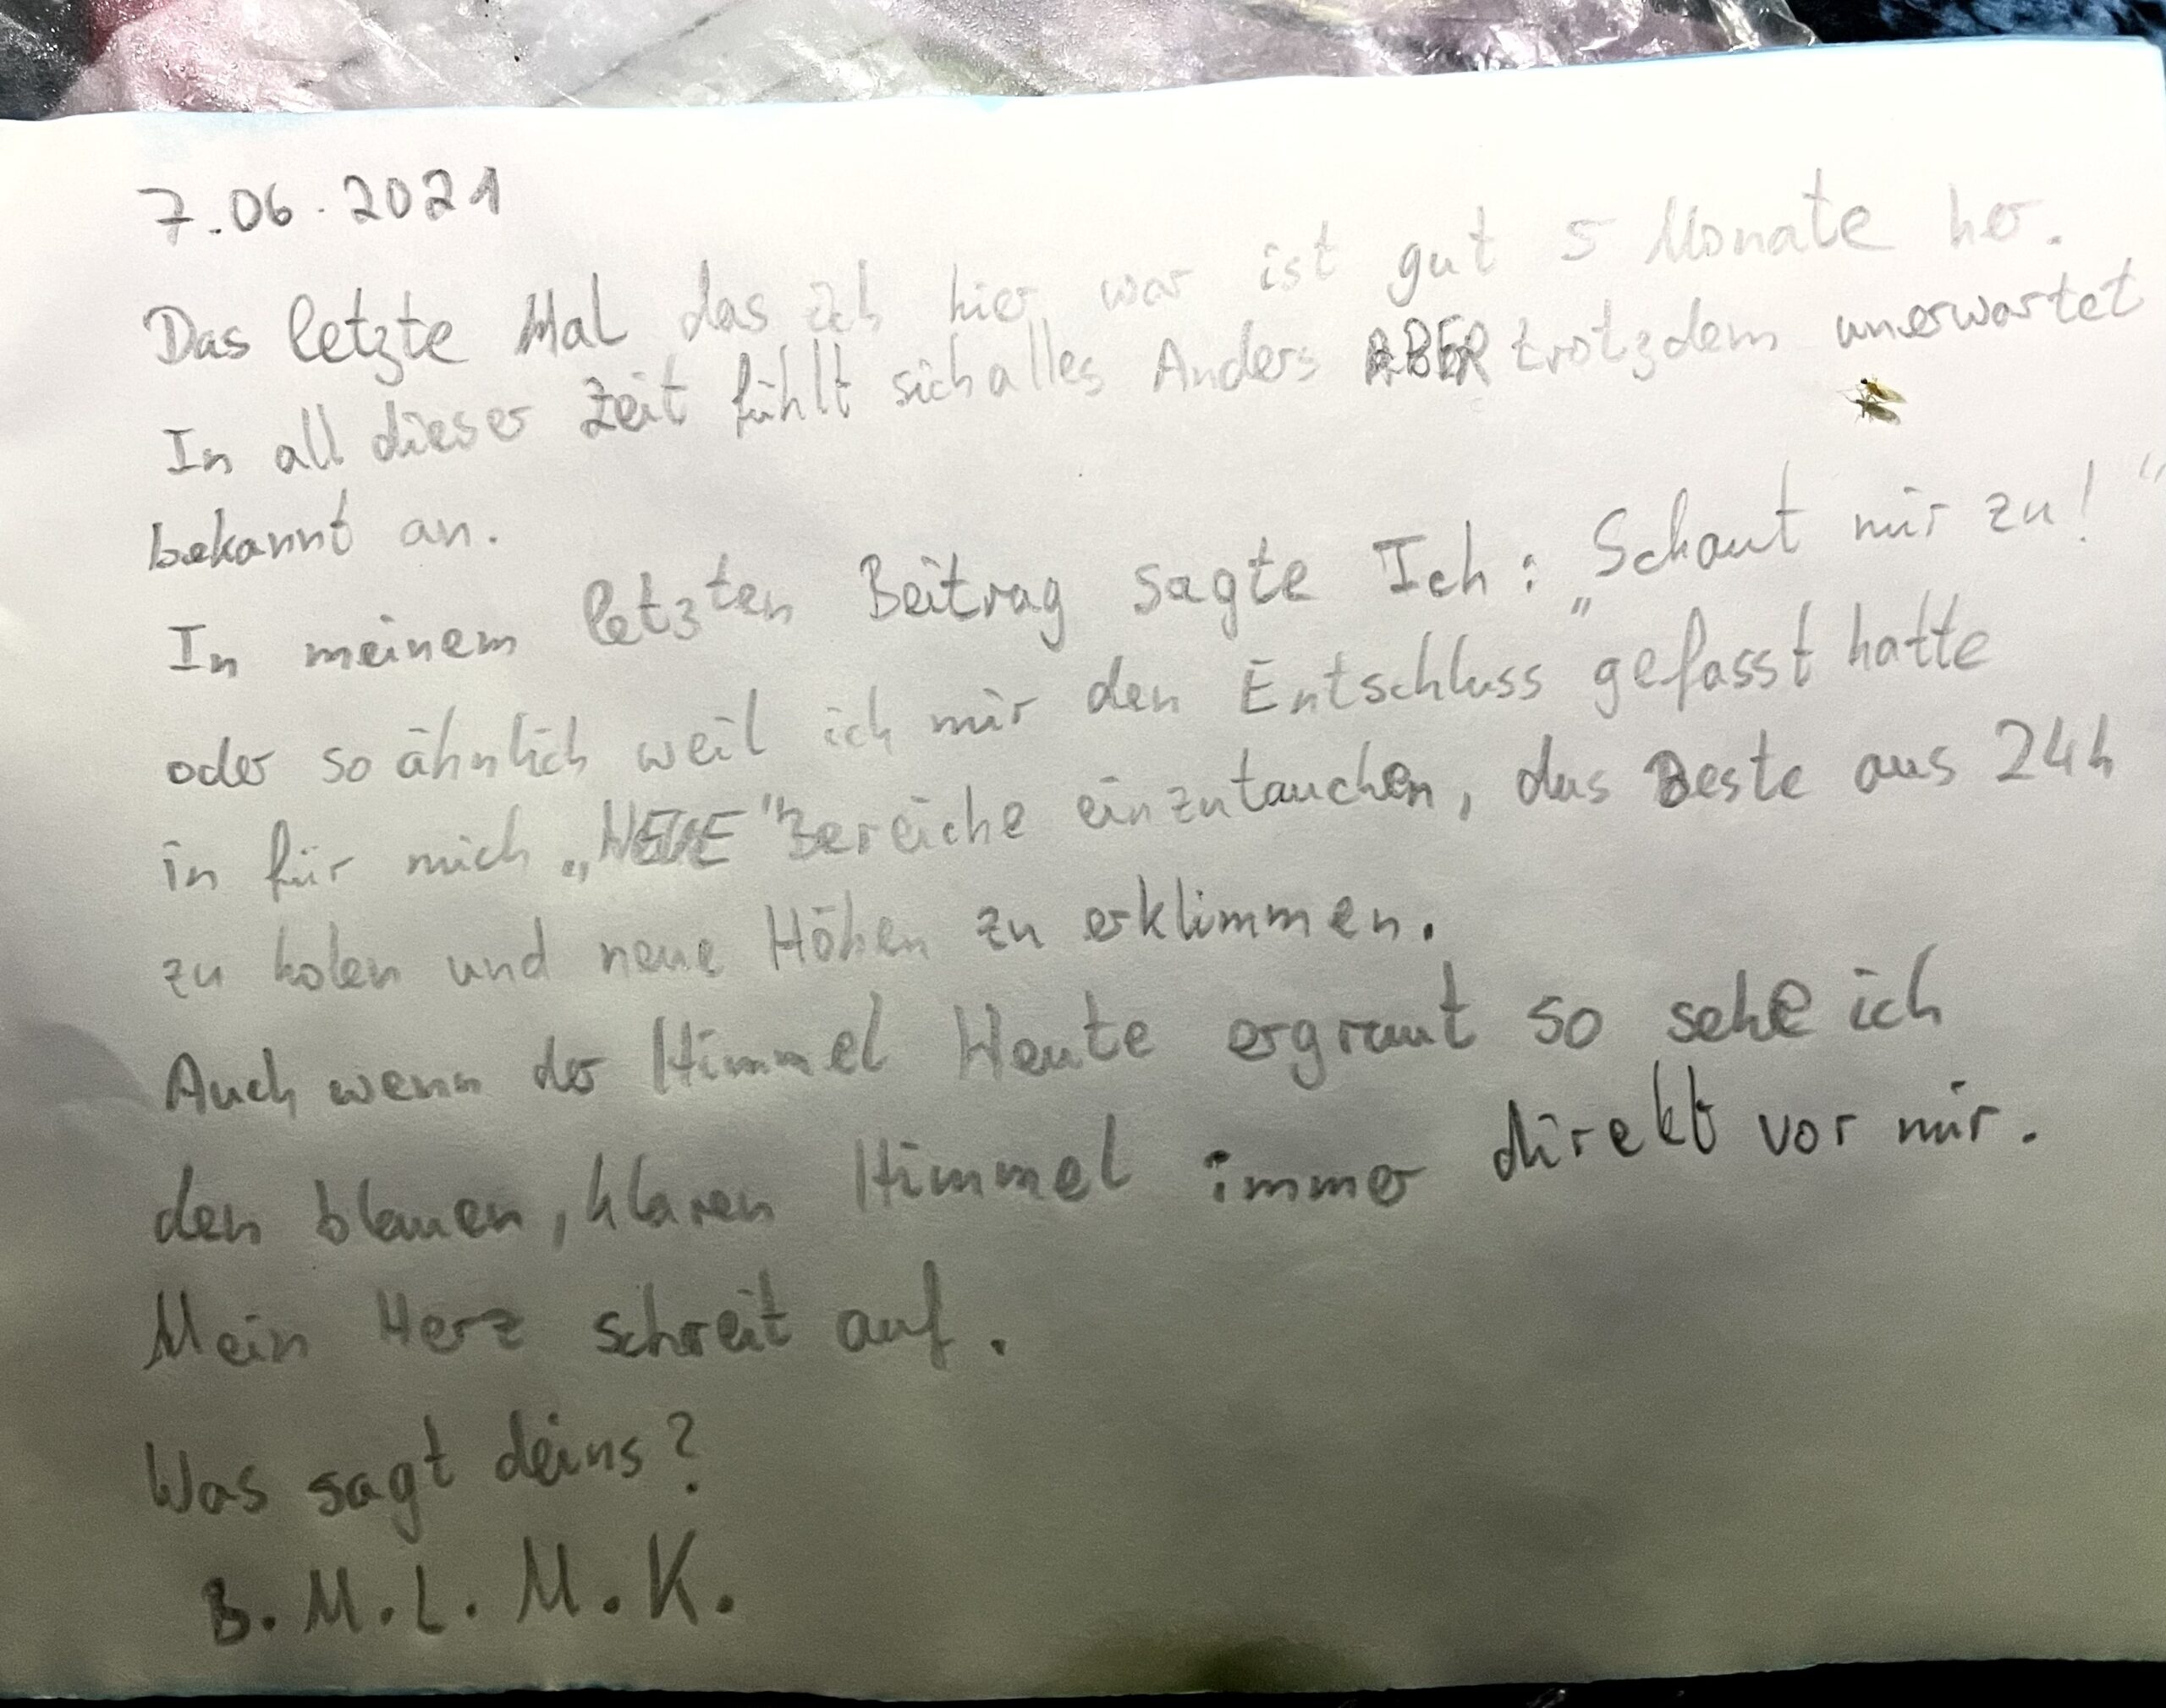 7.06.2021
Das letzte Mal das ich hier war ist gut 5 Monate her.
In all dieser Zeit fühlt sich alles Anders ABER trotzdem unerwartet
bekannt an.
In meinem letzten Beitrag sagte Ich: „Schaut mir zu!"
oder so ähnlich weil ich mir den Entschluss gefasst hatte
in für mich „NEUE" Bereiche einzutauchen, das Beste aus 24h
zu holen und neue Höhen zu erklimmen.
Auch wenn der Himmel Heute ergraut so sehe ich
den blauen, klaren Himmel immer direkt vor mir.
Mein Herz schreit auf.
Was sagt deins?
B.M.L.M.K.